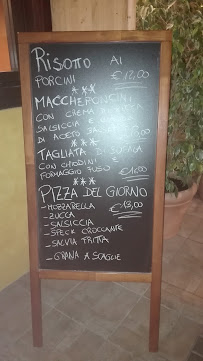 Risotto AI
PORCINI €12,00
***
MACCHERONCINI
CON CREMA
SALSICCIA E
DI ACETO
***
TAGLIATA DI
CON CIPOLLINE E
FORMAGGIO FUSO
***
PIZZA DEL GIORNO
-MOZZARELLA €13,00
-ZUCCA
-SALSICCIA
-SPECK CROCCANTE
-SALVIA FRITTA
-GRANA A SCAGLIE